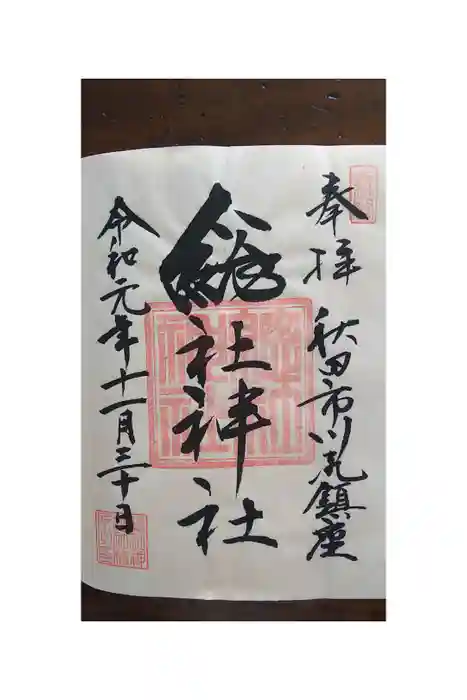 奉拝
秋田市川尻鎮座
総社神社
令和元年十一月三十日